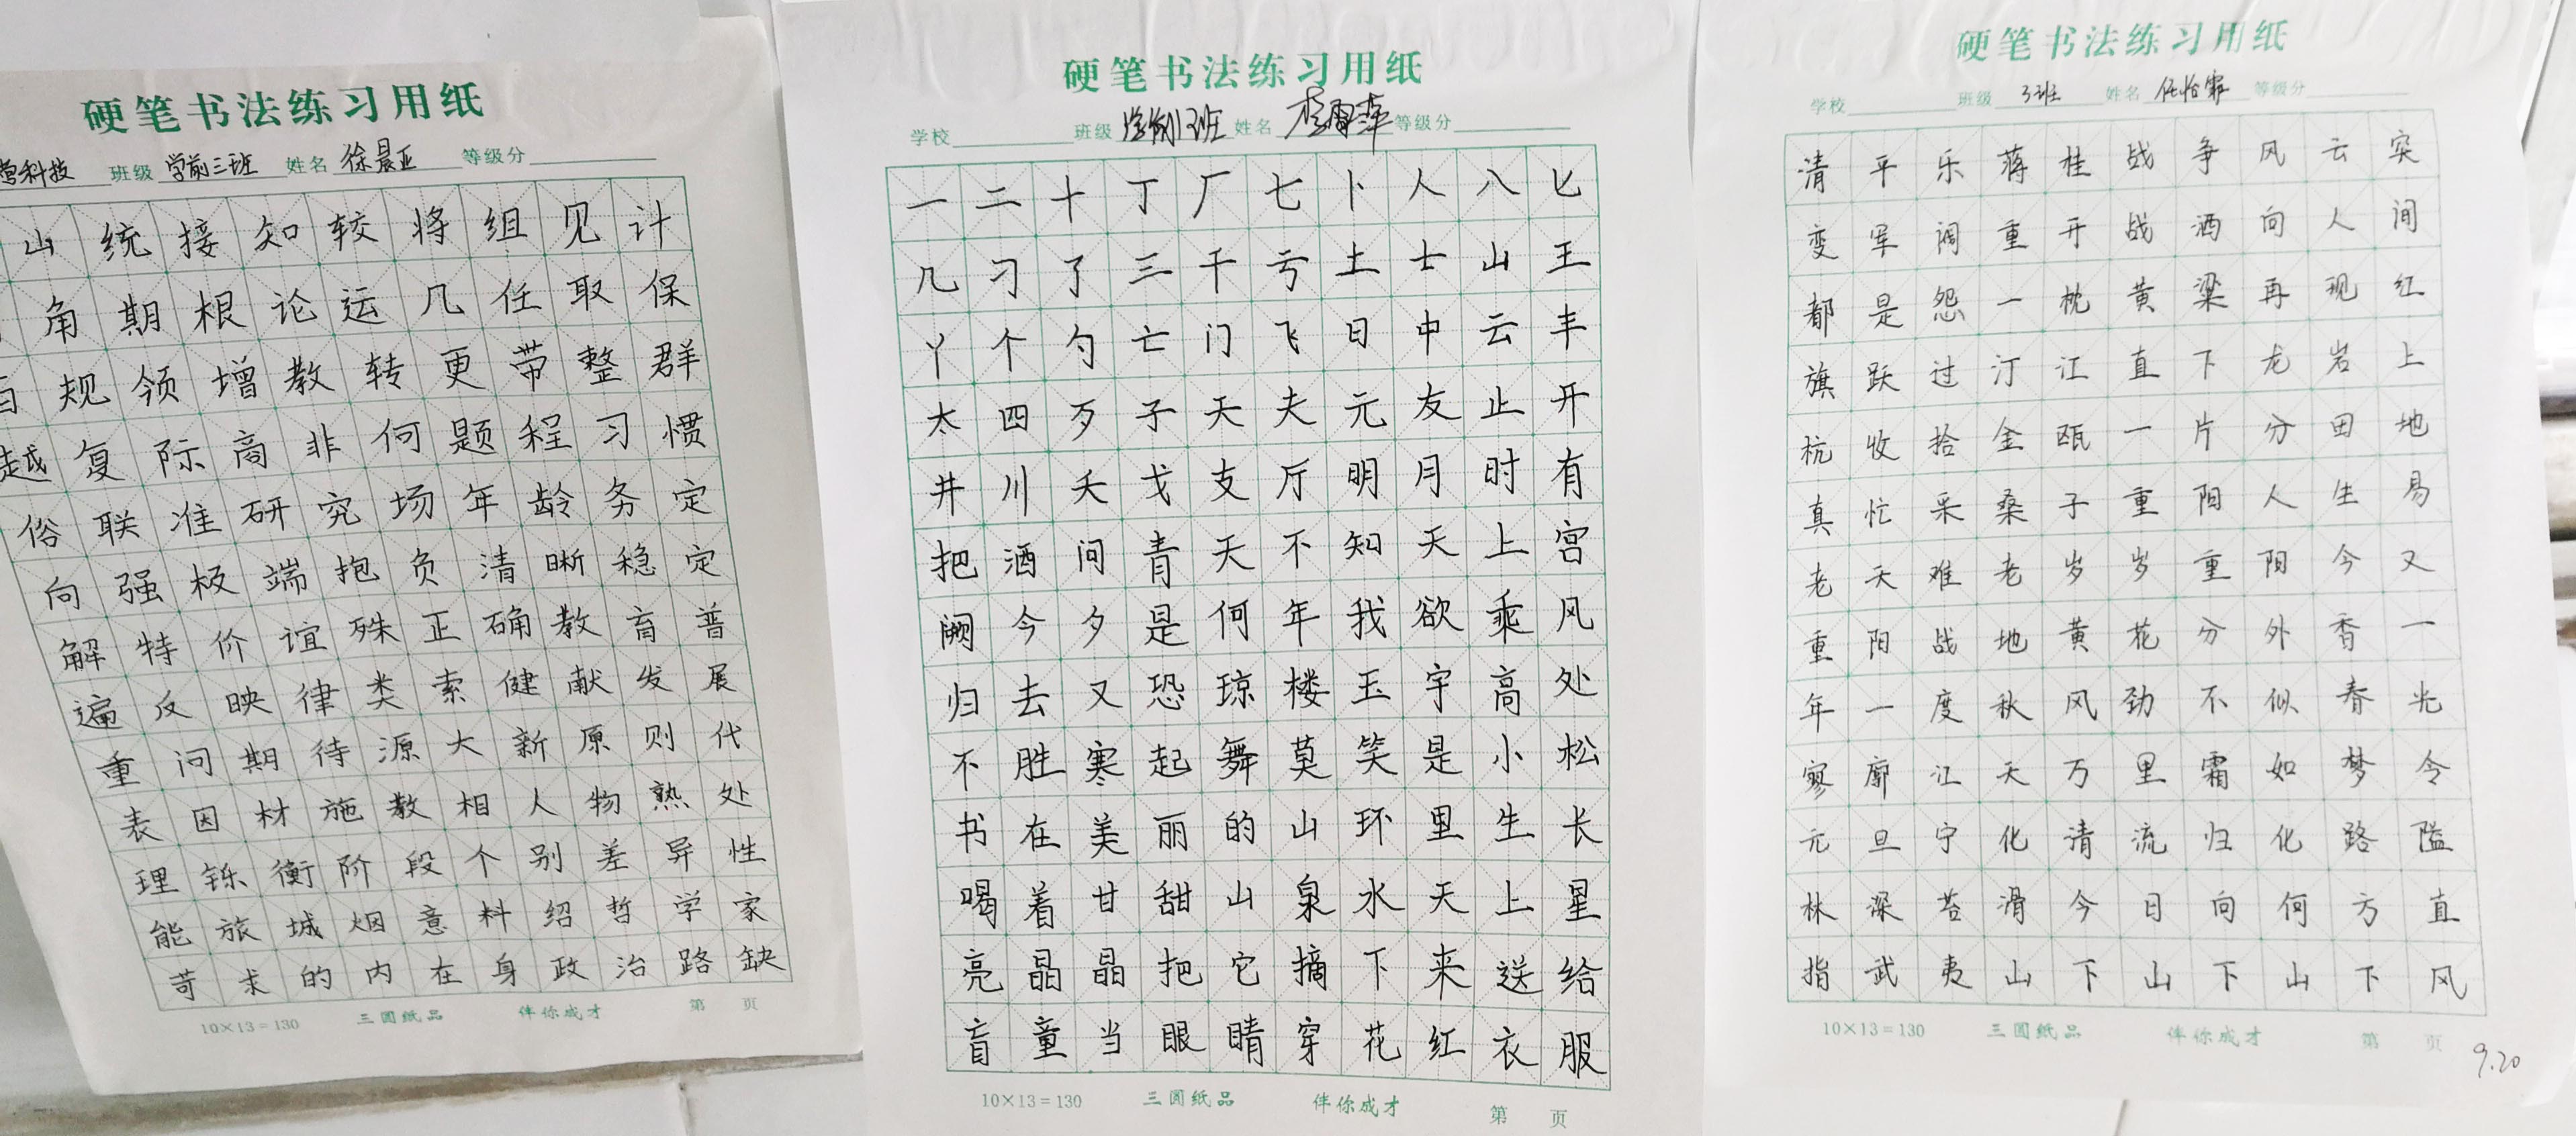 硬笔书法练习用纸
科技 班级 学前三班 姓名 徐晨亚 等级分
山统接知较将组见计
角期根论运几任取保
百规领增教转更带整群
越复际商非何题程习惯
俗联准研究场年龄务定
向强极端抱负清晰稳定
解特价谊殊正确教育普
遍反映律类索健献发展
重问期待源大新原则代
表因材施教相人物熟处
理铄衡阶段个别差异性
能旅城烟意料绍哲学家
苛求的内在身政治路缺
10×13=130 三圆纸品 伴你成才 第 页
硬笔书法练习用纸
学校 班级 学前13班 姓名 等级分
一二十丁厂七卜人八匕
几刁了三干亏土士山王
丫个勺亡门飞日中云丰
太四歹子天夫元友止开
井川夭戈支厅明月时有
把酒问青天不知天上宫
阙今夕是何年我欲乘风
归去又恐琼楼玉宇高处
不胜寒起舞莫笑是小松
书在美丽的山环里生长
喝着甘甜山泉水天上星
亮晶晶把它摘下来送给
盲童当眼睛穿花红衣服
10×13=130 三圆纸品 伴你成才 第 页
硬笔书法练习用纸
学校 班级 3班 姓名 任怡霏 等级分
清平乐蒋桂战争风云突
变军阀重开战洒向人间
都是怨一枕黄粱再现红
旗跃过汀江直下龙岩上
杭收拾金瓯一片分田地
真忙采桑子重阳人生易
老天难老岁岁重阳今又
重阳战地黄花分外香一
年一度秋风劲不似春光
寥廓江天万里霜如梦令
元旦宁化清流归化路隘
林深苔滑今日向何方直
指武夷山下山下山下风
10×13=130 三圆纸品 伴你成才 第 页
9.20